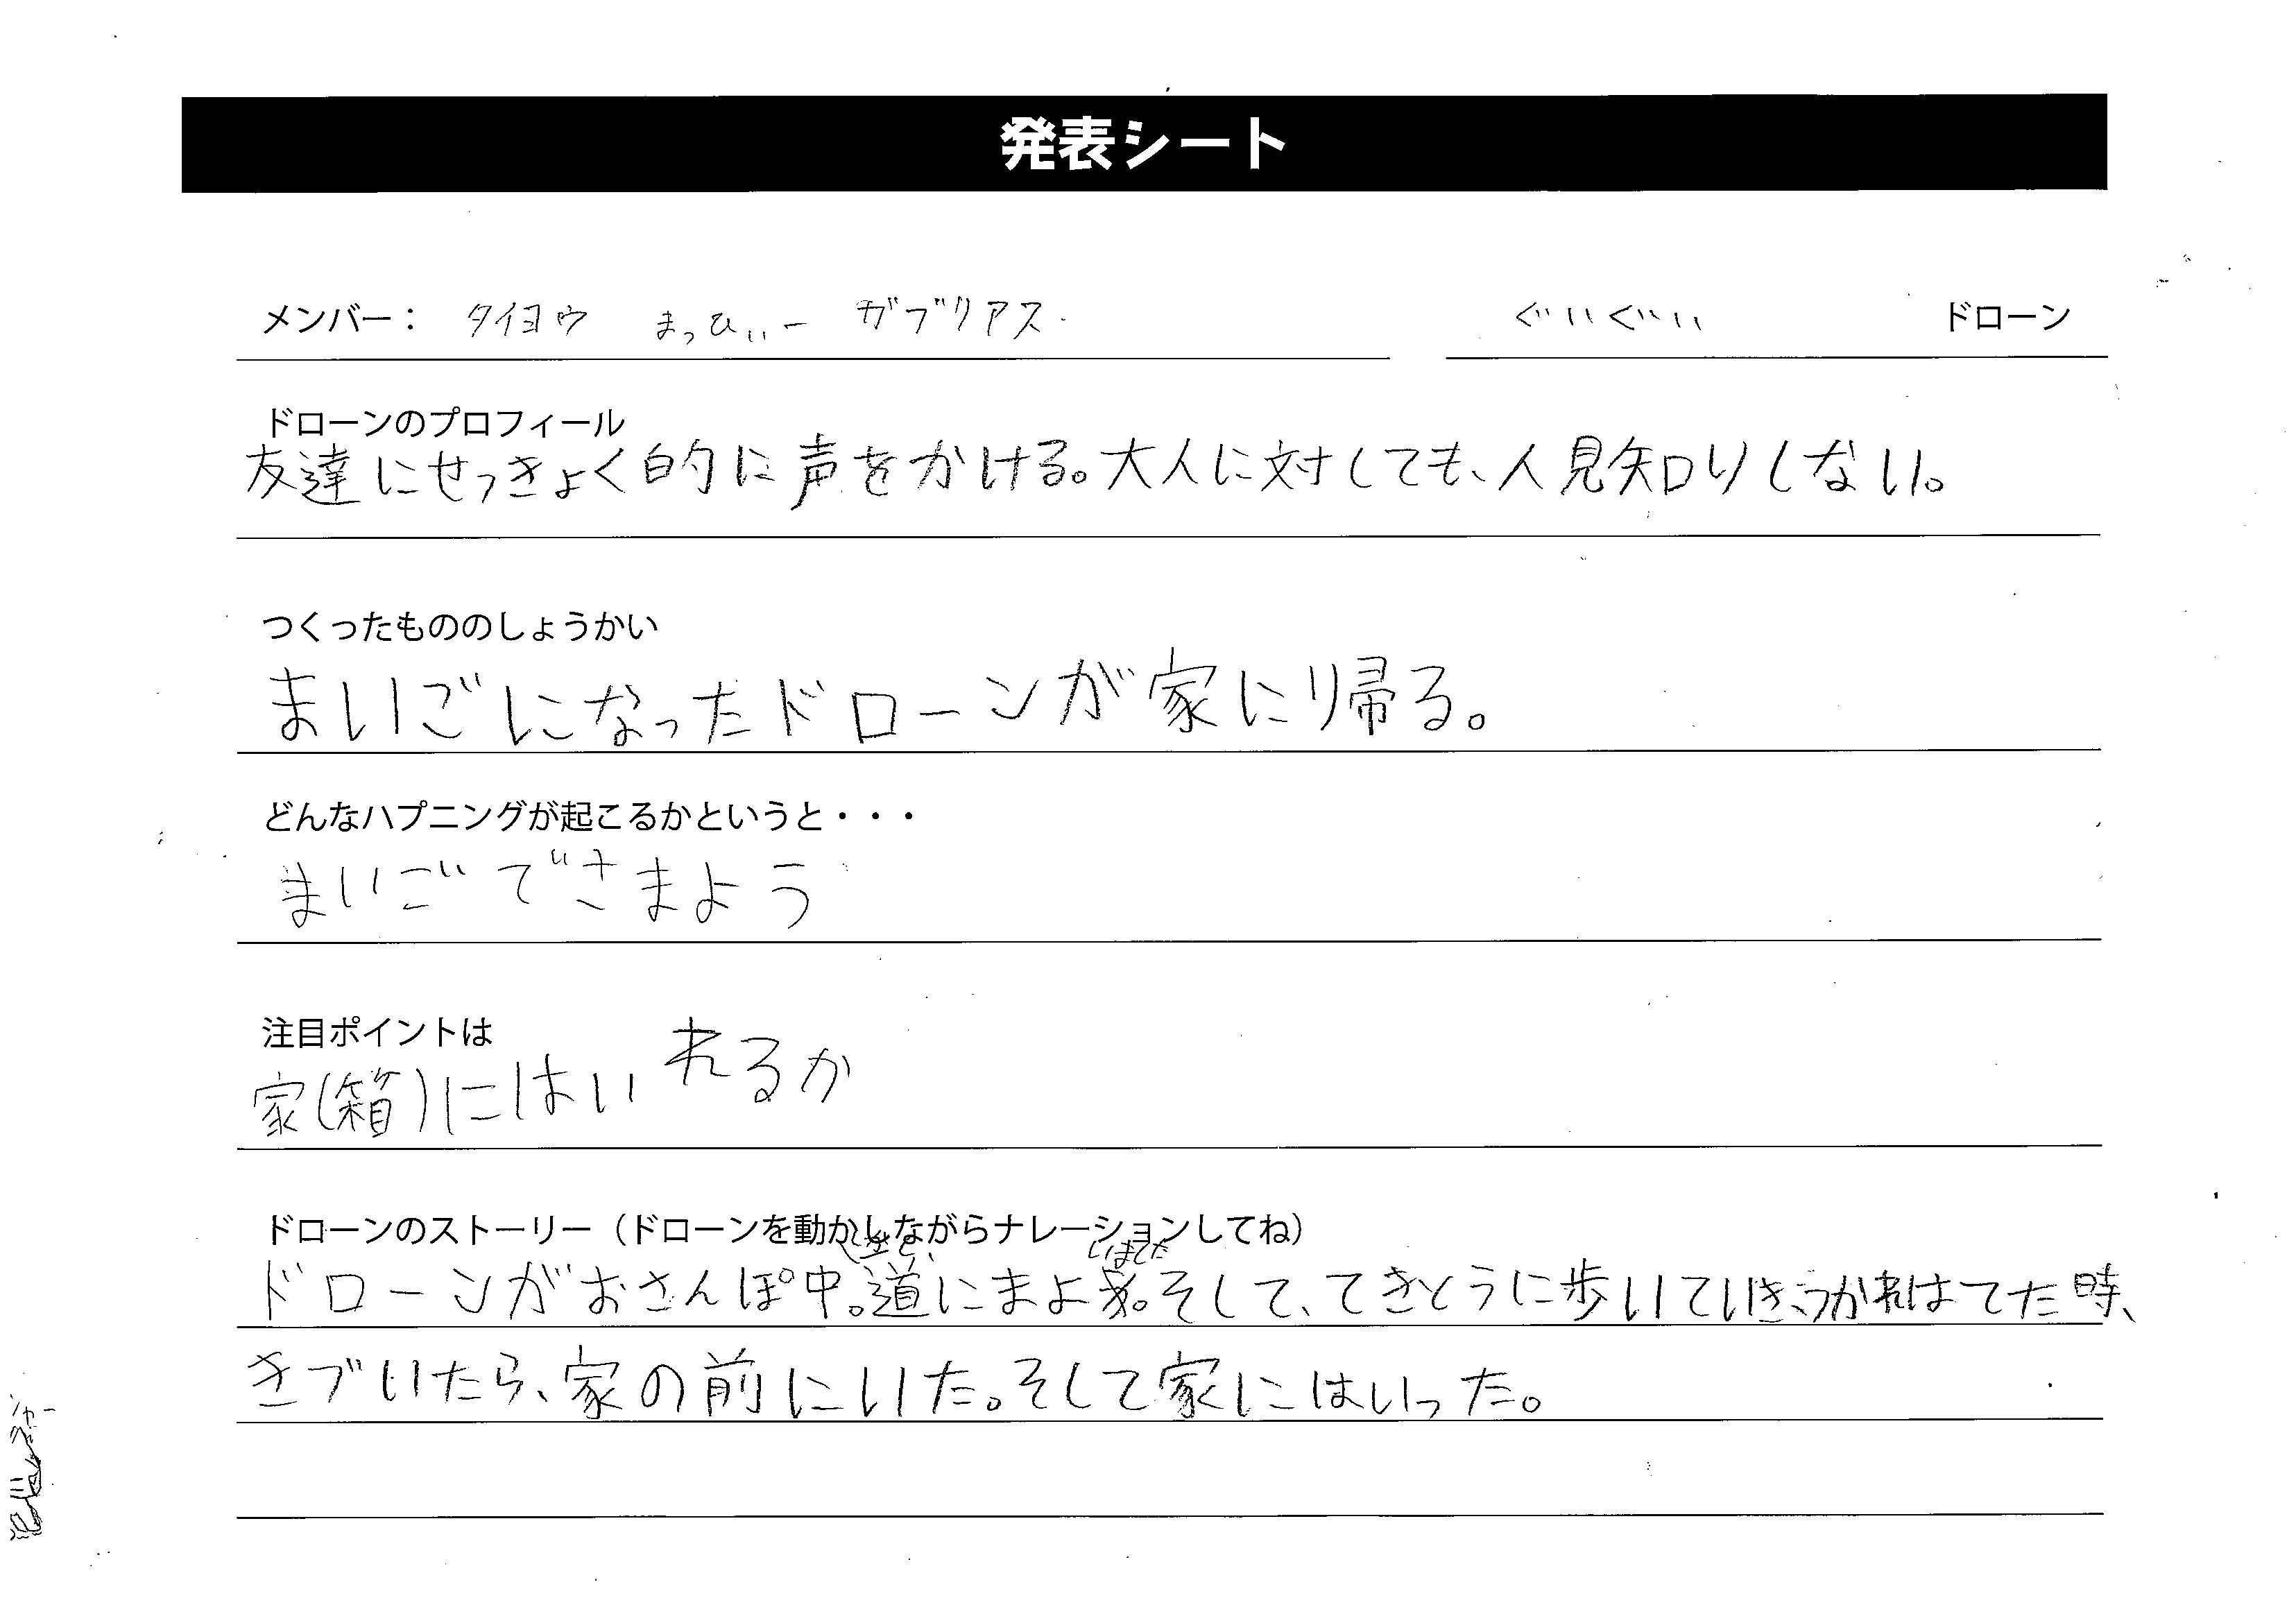 発表シート
メンバー： タイヨウ まっひぃー ガブリアス ぐいぐい ドローン
ドローンのプロフィール
友達にせっきょく的に声をかける。大人に対しても、人見知りしない。
つくったもののしょうかい
まいごになったドローンが家に帰る。
どんなハプニングが起こるかというと・・・
まいごでさまよう
注目ポイントは
家(箱)にはいれるか
ドローンのストーリー（ドローンを動かしながらナレーションしてね）
いました
ドローンがおさんぽ中。道にまよ。そして、てきとうに歩いていき、つかれはてた時、
きづいたら、家の前にいた。そして家にはいった。